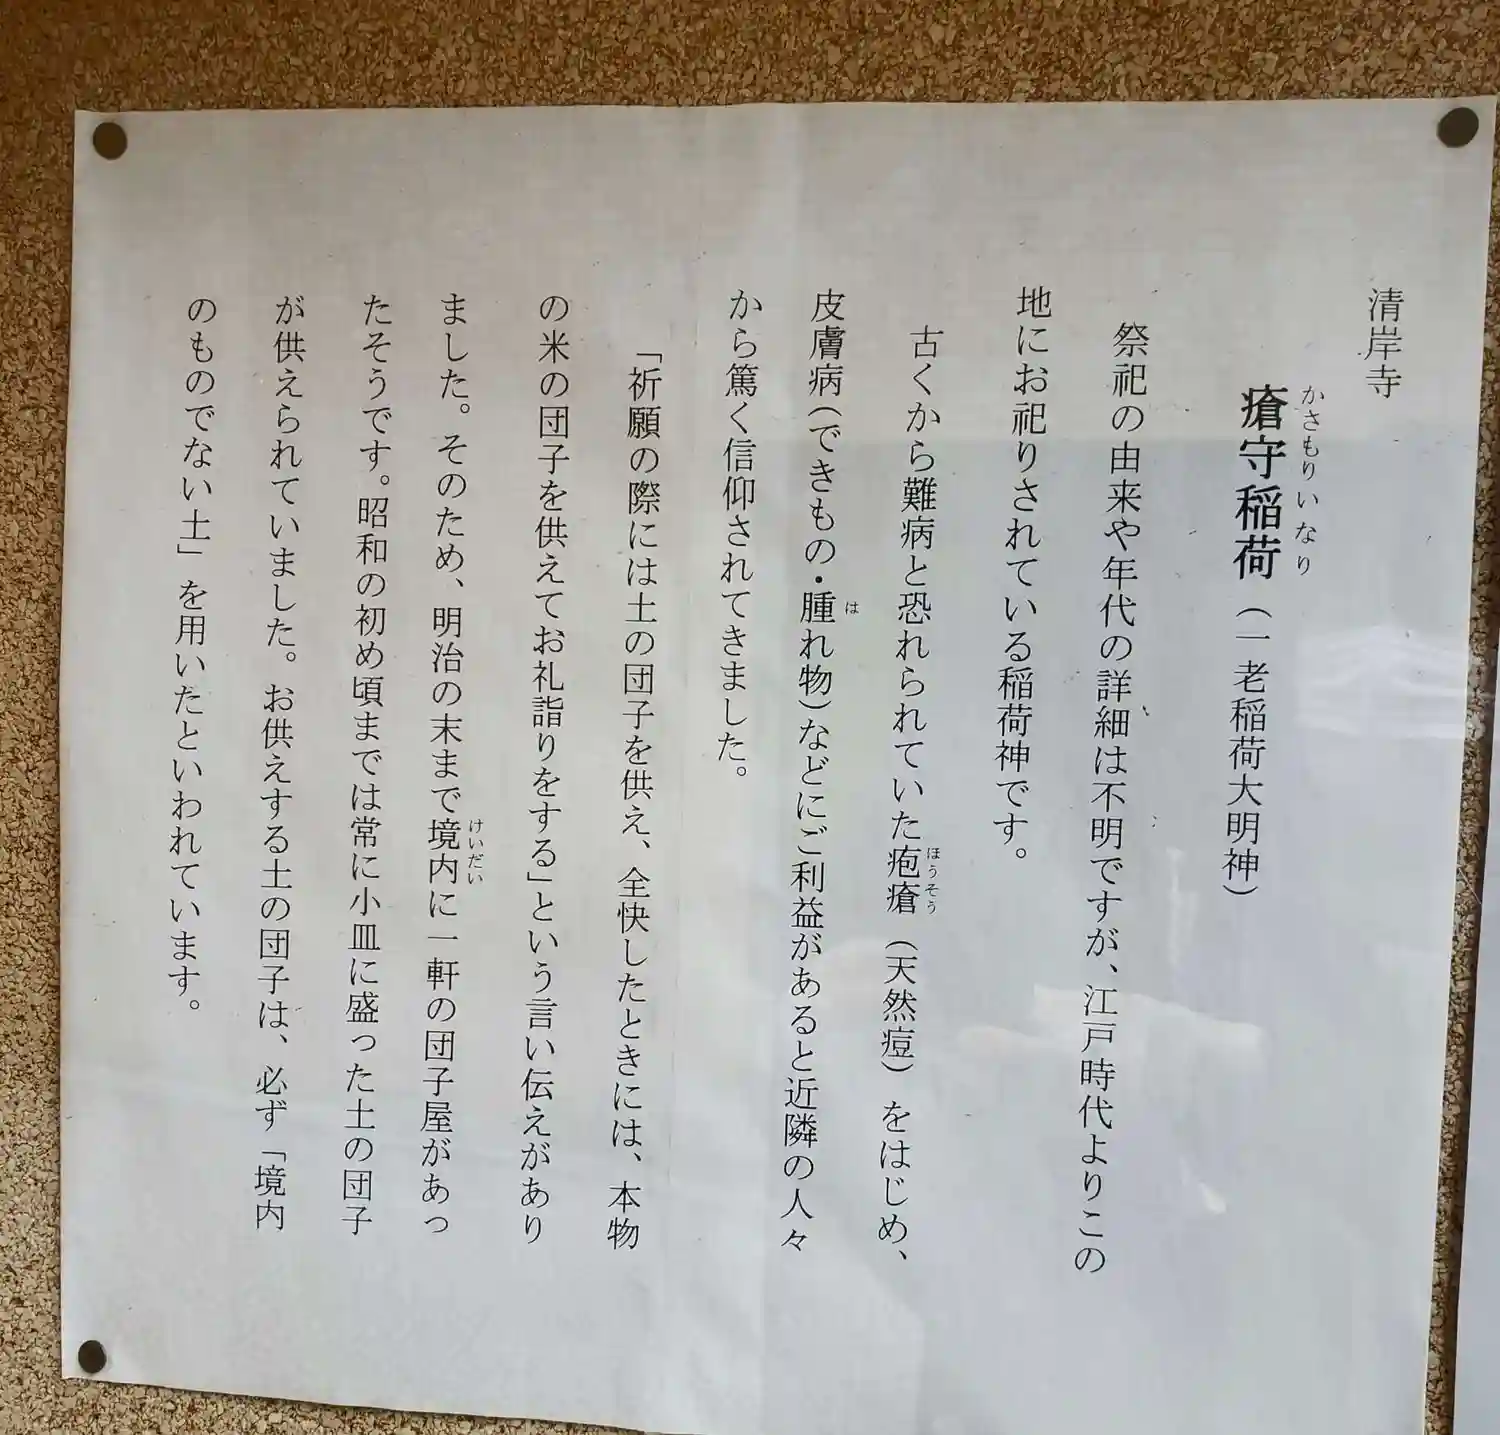 清岸寺
瘡守稲荷(一老稲荷大明神)
かさもりいなり
祭祀の由来や年代の詳細は不明ですが、江戸時代よりこの
地にお祀りされている稲荷神です。
古くから難病と恐れられていた疱瘡(天然痘)をはじめ、
ほうそう
皮膚病(できもの・腫れ物)などにご利益があると近隣の人々
は
から篤く信仰されてきました。
「祈願の際には土の団子を供え、全快したときには、本物
の米の団子を供えてお礼詣りをする」という言い伝えがあり
ました。そのため、明治の末まで境内に一軒の団子屋があっ
けいだい
たそうです。昭和の初め頃までは常に小皿に盛った土の団子
が供えられていました。お供えする土の団子は、必ず「境内
のものでない土」を用いたといわれています。